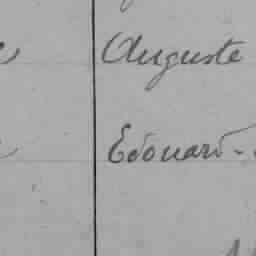 Auguste
Edouard -